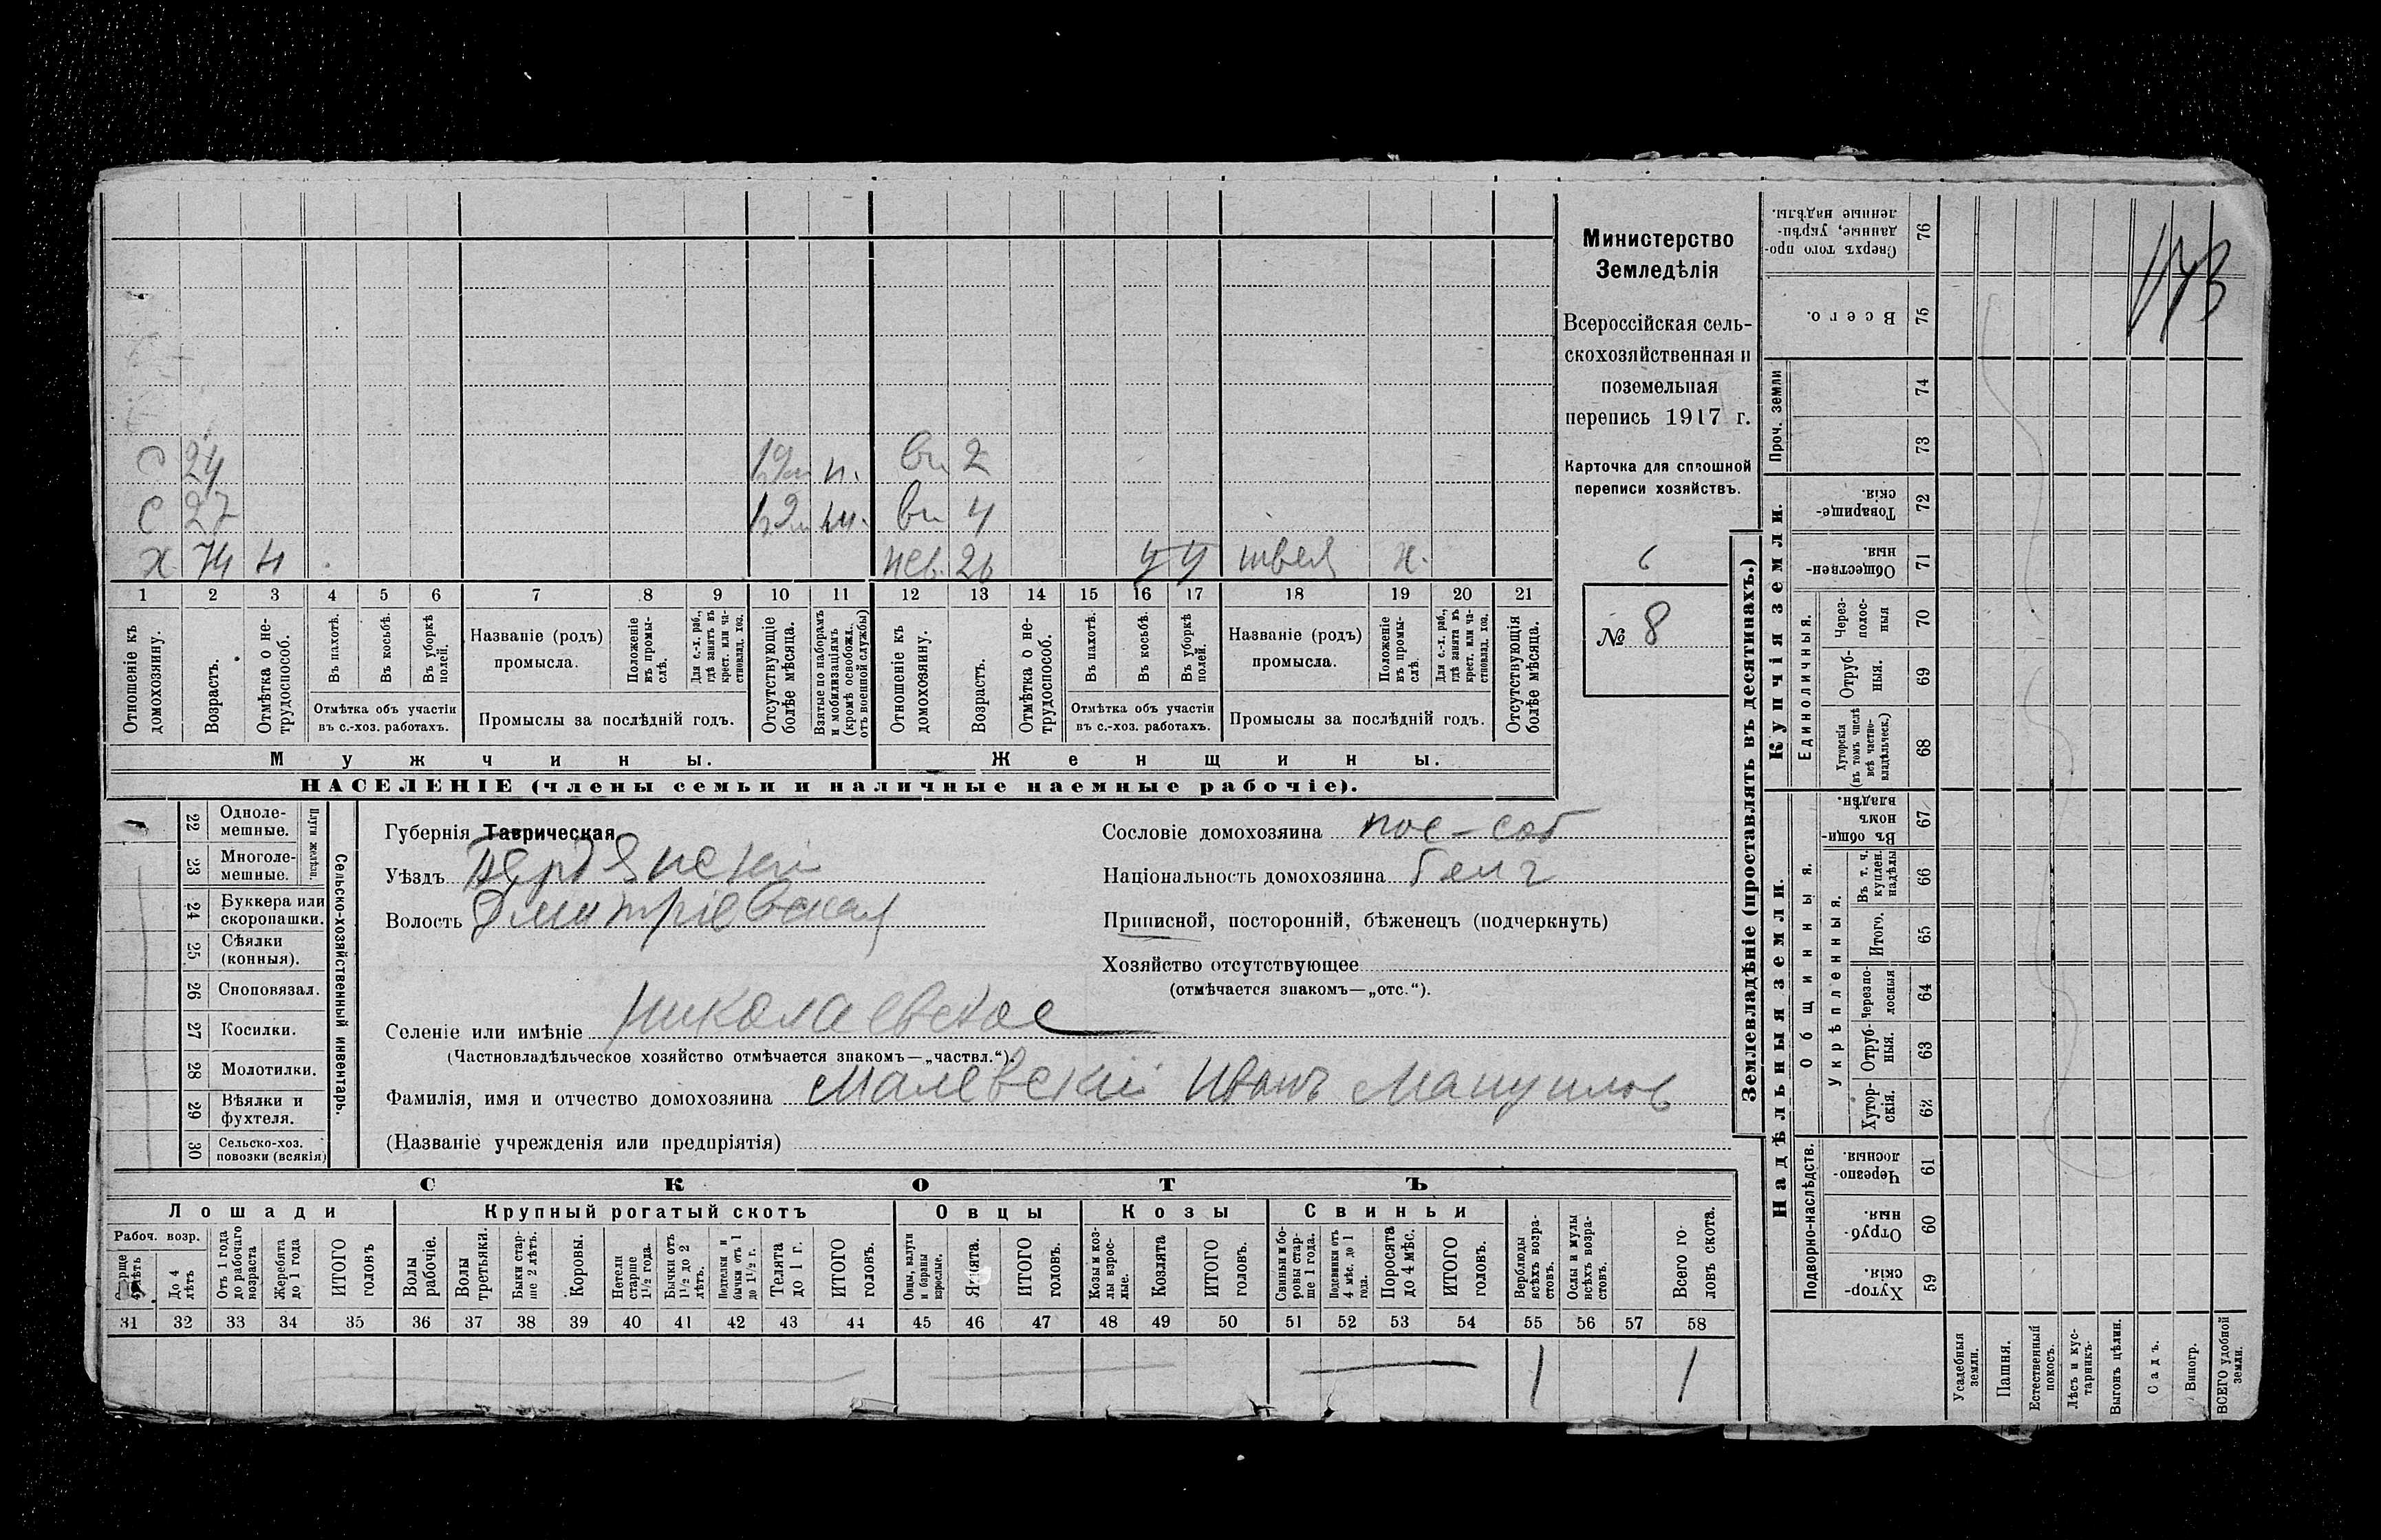 173
Министерство
Земледѣлія
Всероссійская сель-
скохозяйственная и
поземельная
перепись 1917 г.
Карточка для сплошной
переписи хозяйствъ.
6
№ 8
С 24 н. вн 2
С 27 вн 4
х 74 н нев. 26 швея х.
1 2 3 4 5 6 7 8 9 10 11 12 13 14 15 16 17 18 19 20 21
Отношеніе къ домохозяину.
Возрастъ.
Отмѣтка о не-трудоспособ.
Въ пахотѣ.
Въ косьбѣ.
Въ уборкѣ полей.
Отмѣтка объ участіи
въ с.-хоз. работахъ.
Названіе (родъ)
промысла.
Положеніе въ промы-слѣ.
Для с.-х. раб., гдѣ занятъ въ крест. или ча-стновлад. хоз.
Промыслы за послѣдній годъ.
Отсутствующіе болѣе мѣсяца.
Взятые по наборамъ и мобилизаціямъ (кромѣ освобожд. отъ военной службы)
Отношеніе къ домохозяину.
Возрастъ.
Отмѣтка о не-трудоспособ.
Въ пахотѣ.
Въ косьбѣ.
Въ уборкѣ полей.
Отмѣтка объ участіи
въ с.-хоз. работахъ.
Названіе (родъ)
промысла.
Положеніе въ промы-слѣ.
Для с.-х. раб., гдѣ занята въ крест. или ча-стновлад. хоз.
Промыслы за послѣдній годъ.
Отсутствующія болѣе мѣсяца.
Мужчины. Женщины.
НАСЕЛЕНІЕ (члены семьи и наличные наемные рабочіе).
22 Одноле-мешные.
23 Многоле-мешные.
Плуги желѣзн.
24 Буккера или скоропашки.
25 Сѣялки (конныя).
26 Сноповязал.
27 Косилки.
28 Молотилки.
29 Вѣялки и фухтеля.
30 Сельско-хоз. повозки (всякія)
Сельско-хозяйственный инвентарь.
Губернія Таврическая
Уѣздъ Бердянскій
Волость Дмитріевская
Сословіе домохозяина пос-соб
Національность домохозяина
Приписной, посторонній, бѣженецъ (подчеркнуть)
Хозяйство отсутствующее
(отмѣчается знакомъ—„отс.“).
Селеніе или имѣніе Николаевское
(Частновладѣльческое хозяйство отмѣчается знакомъ—„частвл.“).
Фамилія, имя и отчество домохозяина Малевскій Иванъ Мануилов
(Названіе учрежденія или предпріятія)
СКОТЪ
Лошади Крупный рогатый скотъ Овцы Козы Свиньи
Рабоч. возр.
До 4 лѣтъ
Отъ 1 года до рабочаго возраста
Жеребята до 1 года
ИТОГО головъ
Волы рабочіе.
Волы третьяки.
Быки стар-ше 2 лѣтъ.
Коровы.
Нетели старше 1½ года.
Бычки отъ 1½ до 2 лѣтъ.
Подтелки и бычки отъ 1 до 1½ г.
Телята до 1 г.
ИТОГО головъ.
Овцы, валухи и бараны взрослые.
Ягнята.
ИТОГО головъ.
Козы и коз-лы взрос-лые.
Козлята
ИТОГО головъ.
Свиньи и бо-ровы стар-ше 1 года.
Подсвинки отъ 4 мѣс. до 1 года.
Поросята до 4 мѣс.
ИТОГО головъ.
Верблюды всѣхъ возра-стовъ.
Ослы и мулы всѣхъ возра-стовъ.
Всего го-ловъ скота.
31 32 33 34 35 36 37 38 39 40 41 42 43 44 45 46 47 48 49 50 51 52 53 54 55 56 57 58
1 1
Землевладѣніе (проставлять въ десятинахъ.)
Надѣльныя земли. Купчія земли. Проч. земли
Подворно-наслѣдств.
Общинныя.
Укрѣпленныя.
Единоличныя.
Сверхъ того про-данные, укрѣп-ленные надѣлы. 76
Всего. 75
74
73
Товарище-скія. 72
Обществен-ныя. 71
Через-полос-ныя 70
Отруб-ныя. 69
Хуторскія (въ томъ числѣ всѣ частно-владѣльческ.) 68
Въ общин-номъ владѣн. 67
Въ т. ч. куплен. надѣлы 66
Итого. 65
Черезпо-лосныя 64
Отруб-ныя. 63
Хутор-скія. 62
Черезпо-лосныя. 61
Отруб-ныя. 60
Хутор-скія. 59
Усадебныя земли.
Пашня.
Естественный покосъ.
Лѣсъ и кус-тарникъ.
Выгонъ цѣлин.
Садъ.
Виногр.
ВСЕГО удобной земли.